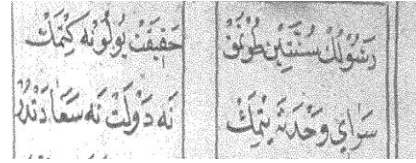 رَسُولُكْ سُنَّتِينْ طُوتْمَقْ
حَقِيقَتْ يُولُونَه كِتْمَكْ
سَرَايِ وَحْدَتَه يَتْمَكْ
نَه دَوْلَتْ نَه سَعَادَتْدُرْ